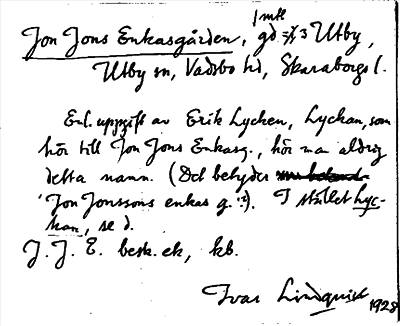 Jon Jons Enkasgården, 1 mtl gd 3 Utby,
Utby sn, Vadsbo hd, Skaraborgs l.
Enl. uppgift av Erik Lycken, Lyckan, som
hör till Jon Jons Enkasg., hör man aldrig
detta namn. (Det betyder
'Jon Jonssons enkas g.'?). I stället Lyc-
kan, se d.
J. J. E. besk. ek, kb.
Ivar Lindquist 1928